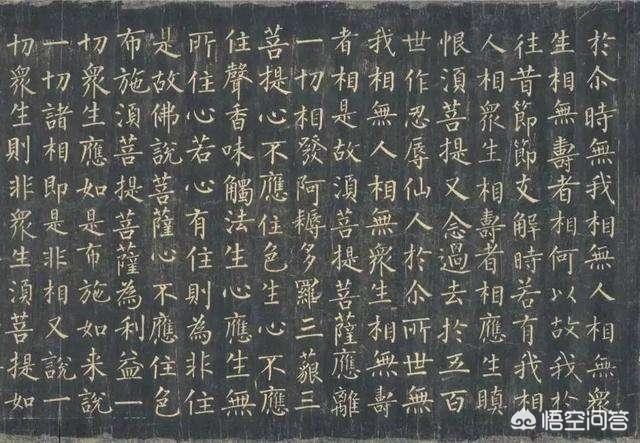 於尒時無我相無人相無衆
生相無壽者相何以故我於
往昔節節支解時若有我相
人相衆生相壽者相應生瞋
恨須菩提又念過去於五百
世作忍辱仙人於尒所世無
我相無人相無衆生相無壽
者相是故須菩提菩薩應離
一切相發阿耨多羅三藐三
菩提心不應住色生心不應
住聲香味觸法生心應生無
所住心若心有住則為非住
是故佛說菩薩心不應住色
布施須菩提菩薩為利益一
切衆生應如是布施如来說
一切諸相即是非相又說一
切衆生則非衆生須菩提如
悟空问答